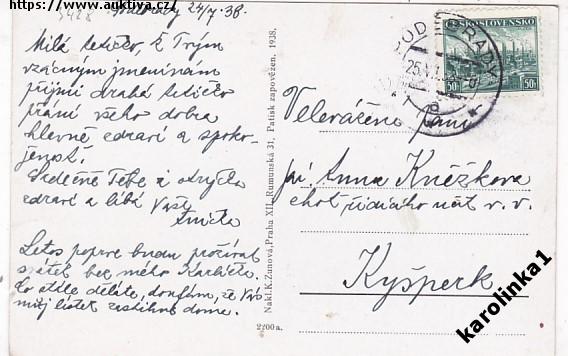 https://www.auktiva.cz/
5428
Poděbrady 24/7.38.
Milá tetičko, k Tvým
vzácným jmeninám
přijmi drahá tetičko
přání všeho dobra
hlavně zdraví a spoko-
jenost!
Srdečně Tebe i strýčka
zdraví a líbá Vaše
Letos poprve budu prožívat
svátek bez mého Karlíčka.
Co stále děláte, doufám, že Vás
můj lístek zastihne doma.
Nakl. K. Zunová, Praha XII., Rumunská 31, Patisk zapovězen. 1938.
2200a.
ČESKOSLOVENSKO
50h
50h
PODĚBRADY
Velevážená paní
pí. Anna Kněžkova
chot řídícího učit v. v.
Kyšperk
karolinka1